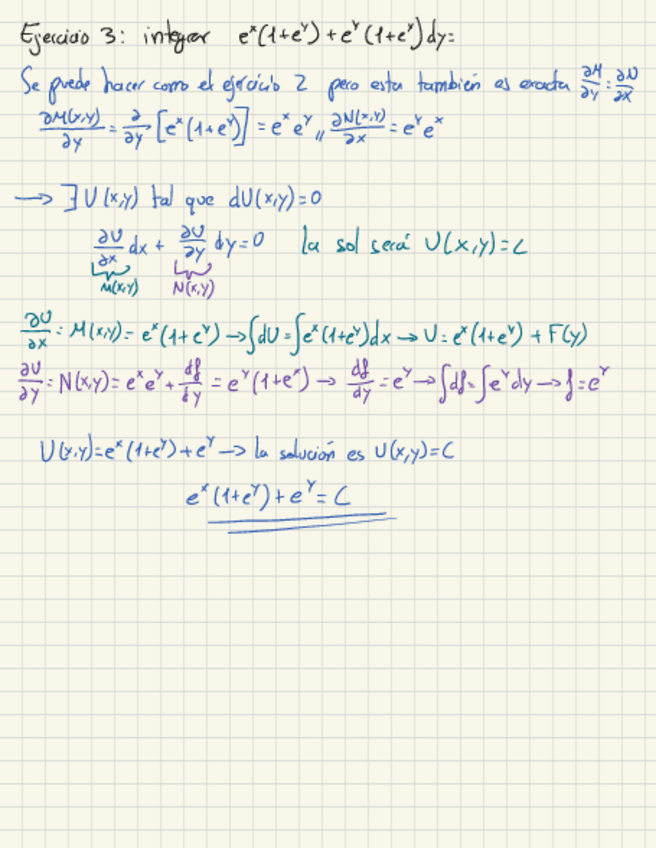 Ejercicio 3: integrar e^x(1+e^y)+e^y(1+e^x)dy=
Se puede hacer como el ejercicio 2 pero esta también es exacta ∂M/∂y = ∂N/∂x
∂M(x,y)/∂y = ∂/∂y [e^x(1+e^y)] = e^x e^y ,, ∂N(x,y)/∂x = e^y e^x
→ ∃ U(x,y) tal que dU(x,y)=0
∂U/∂x dx + ∂U/∂y dy=0 la sol será U(x,y)=C
M(x,y) N(x,y)
∂U/∂x = M(x,y)= e^x(1+e^y) → ∫dU = ∫e^x(1+e^y)dx → U= e^x(1+e^y) + F(y)
∂U/∂y = N(x,y)= e^x e^y + df/dy = e^y(1+e^x) → df/dy = e^y → ∫df = ∫e^y dy → f = e^y
U(x,y)=e^x(1+e^y)+e^y → la solución es U(x,y)=C
e^x(1+e^y)+e^y = C